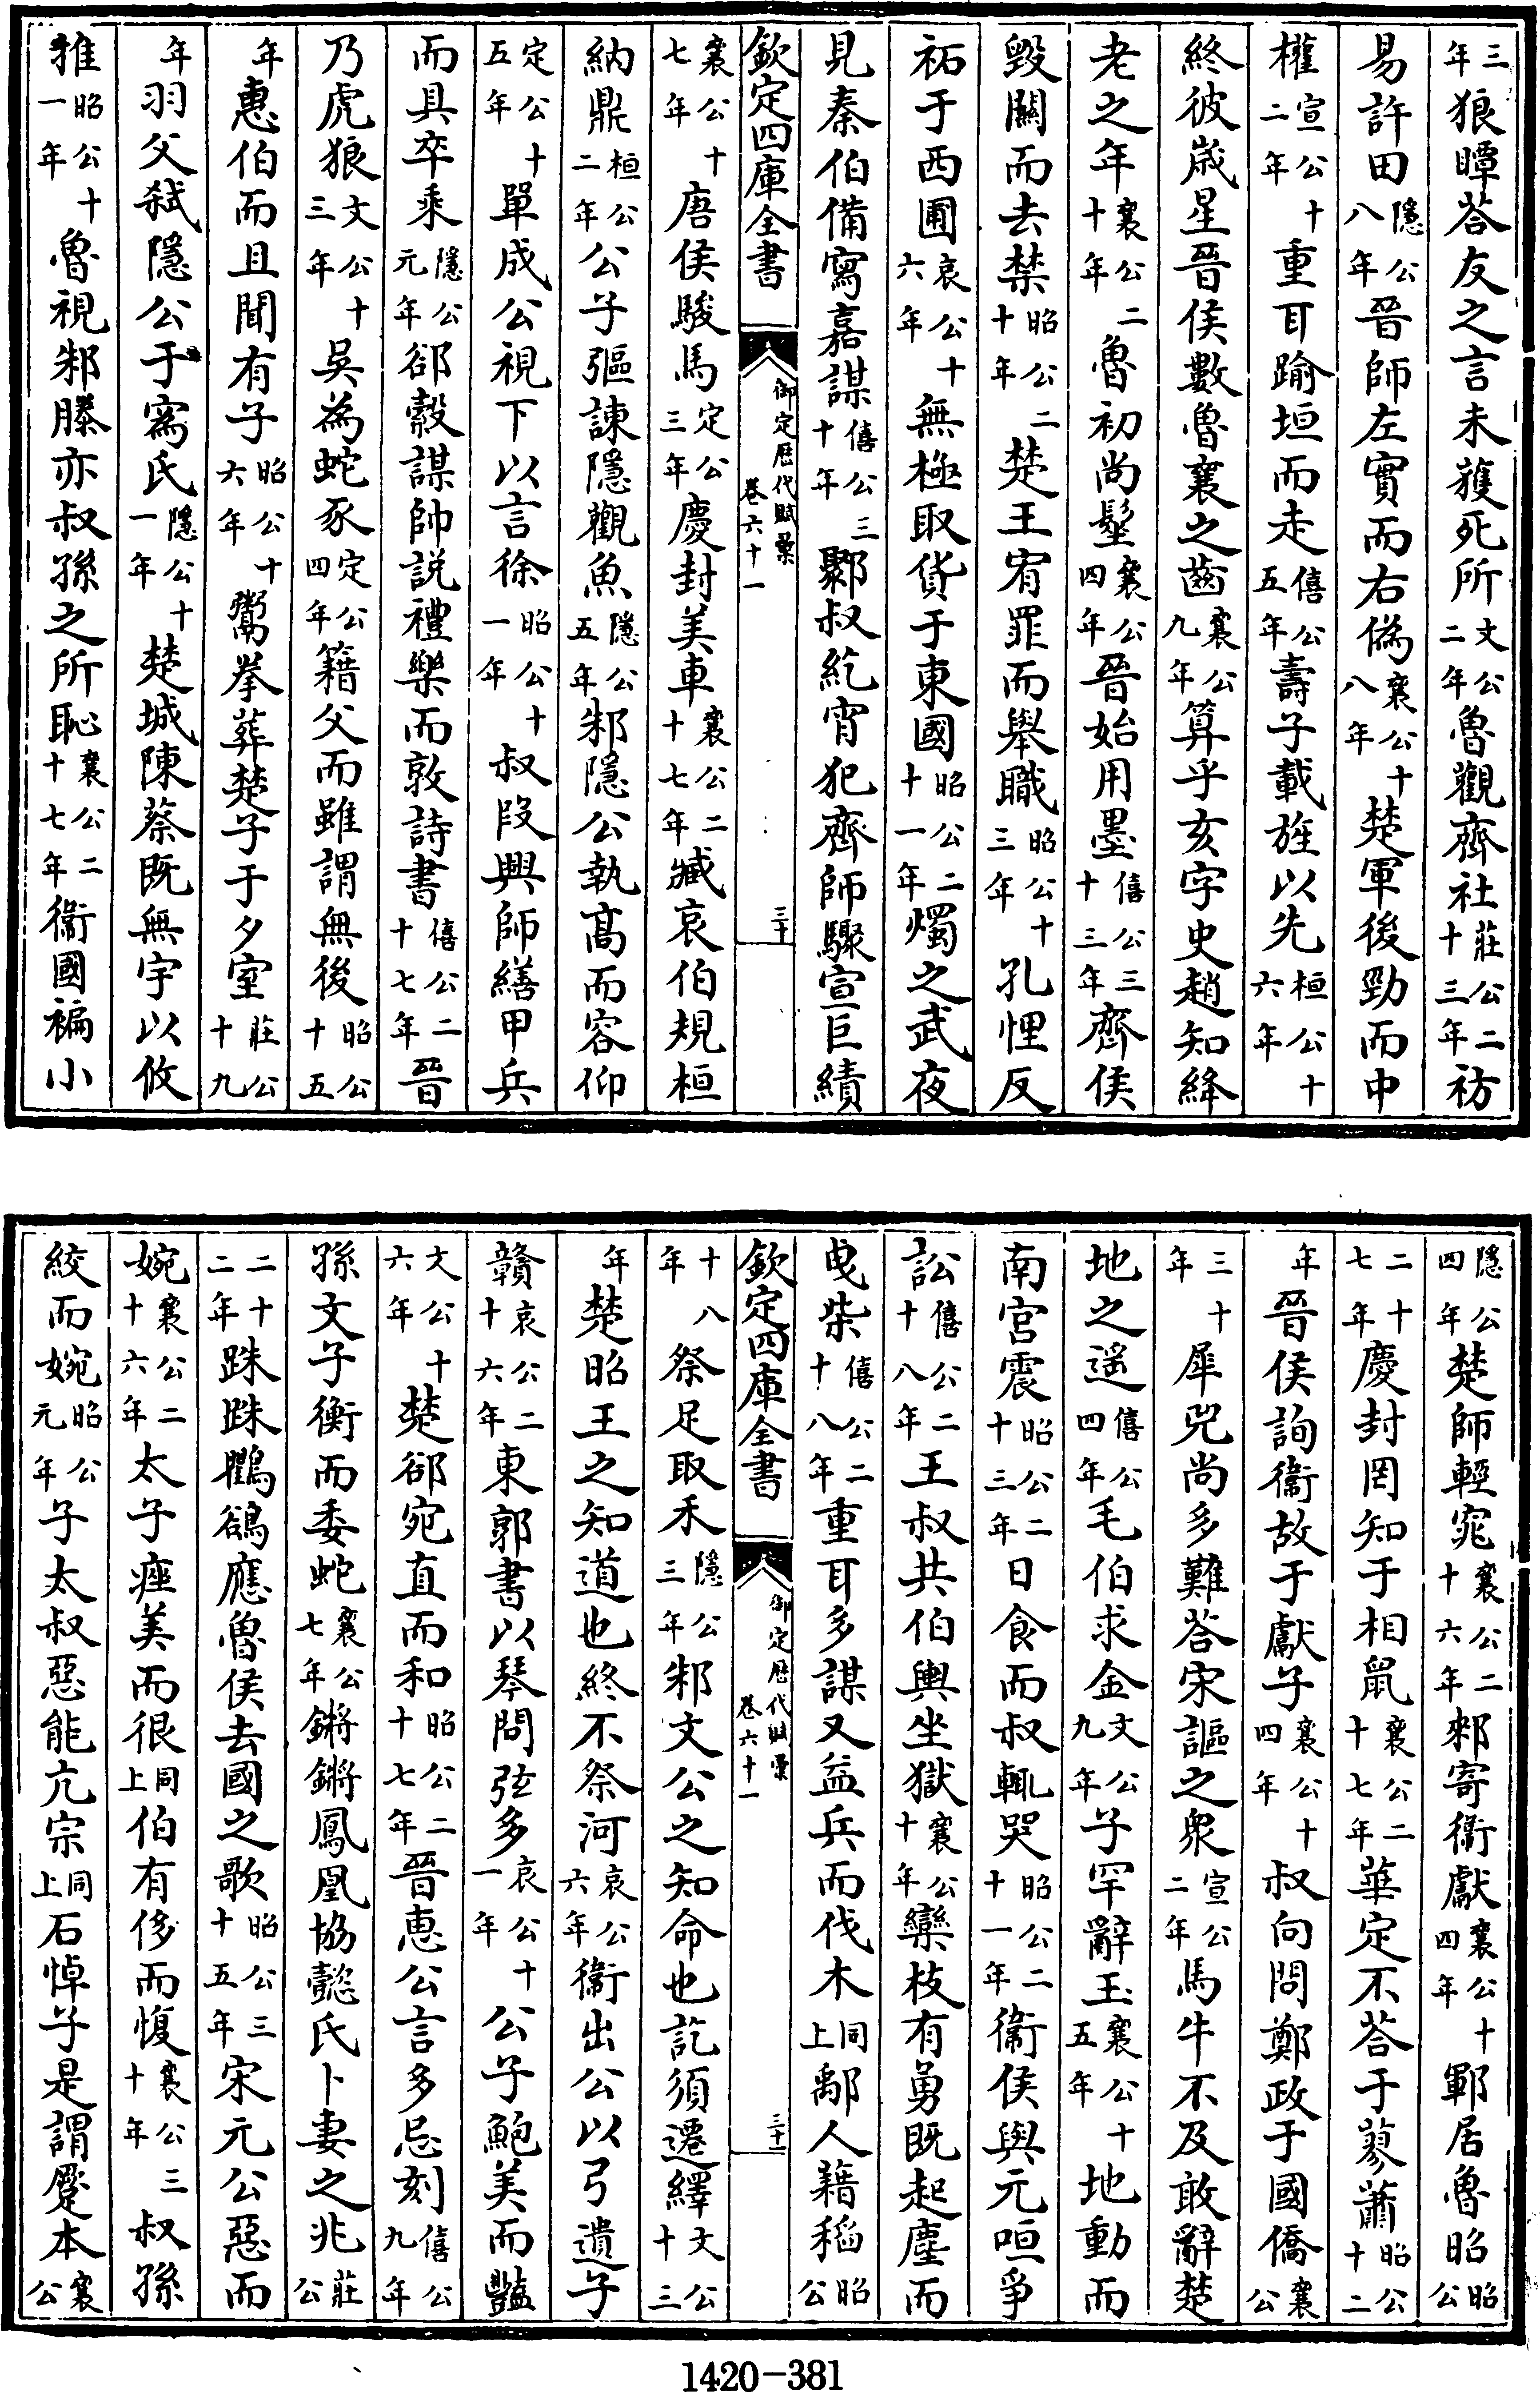 三年狼瞫荅友之言未獲死所文公二年魯觀齊社莊公二十三年祊
易許田隱公八年晉師左實而右偽襄公十八年楚軍後勁而中
權宣公十二年重耳踰垣而走僖公五年壽子載旌以先桓公十六年
終彼嵗星晉侯數魯襄之齒襄公九年算乎亥字史趙知絳
老之年襄公二十年魯初尚髽襄公四年晉始用墨僖公三十三年齊侯
毀關而去禁昭公二十年楚王宥罪而舉職昭公十三年孔悝反
祏于西圃哀公十六年無極取貨于東國昭公二十一年燭之武夜
見秦伯備寫嘉謀僖公三十年鄹叔紇宵犯齊師驟宣巨績
欽定四庫全書 御定歴代賦彙 卷六十一 三十
襄公十七年唐侯駿馬定公三年慶封美車襄公二十七年臧哀伯規桓
納鼎桓公二年公子彄諫隱觀魚隱公五年邾隱公執髙而容仰
定公十五年單成公視下以言徐昭公十一年叔段興師繕甲兵
而具卒乘隱公元年郤縠謀帥説禮樂而敦詩書僖公二十七年晉
乃虎狼文公十三年吳為蛇豕定公四年籍父而雖謂無後昭公十五
年惠伯而且聞有子昭公十六年鬻拳葬楚子于夕室莊公十九
年羽父弑隱公于寪氏隱公十一年楚城陳蔡既無宇以攸
雅昭公十一年魯視邾滕亦叔孫之所恥襄公二十七年衞國褊小
隱公四年楚師輕窕襄公二十六年邾寄衞獻襄公十四年鄆居魯昭昭公
二十七年慶封罔知于相鼠襄公二十七年華定不荅于蓼蕭昭公十二
年晉侯詢衞故于獻子襄公十四年叔向問鄭政于國僑襄公
三十年犀兕尚多難荅宋謳之衆宣公二年馬牛不及敢辭楚
地之遥僖公四年毛伯求金文公九年子罕辭玉襄公十五年地動而
南宫震昭公二十三年日食而叔輒哭昭公二十一年衞侯與元咺爭
訟僖公二十八年王叔共伯輿坐獄襄公十年欒枝有勇既起塵而
曳柴僖公二十八年重耳多謀又益兵而伐木同上鄅人藉稻昭公
欽定四庫全書 御定歴代賦彙 卷六十一 三十一
十八年祭足取禾隱公三年邾文公之知命也訖須遷繹文公十三
年楚昭王之知道也終不祭河哀公六年衞出公以弓遺子
贛哀公二十六年東郭書以琴問弦多哀公十一年公子鮑美而豔
文公十六年楚郤宛直而和昭公二十七年晉惠公言多忌刻僖公九年
孫文子衡而委蛇襄公七年鏘鏘鳳凰協懿氏卜妻之兆莊公
二十二年跦跦鸜鵒應魯侯去國之歌昭公三十五年宋元公惡而
婉襄公二十六年太子痤美而很同上伯有侈而愎襄公三十年叔孫
絞而婉昭公元年子太叔惡能亢宗同上石悼子是謂蹷本襄公
1420-381